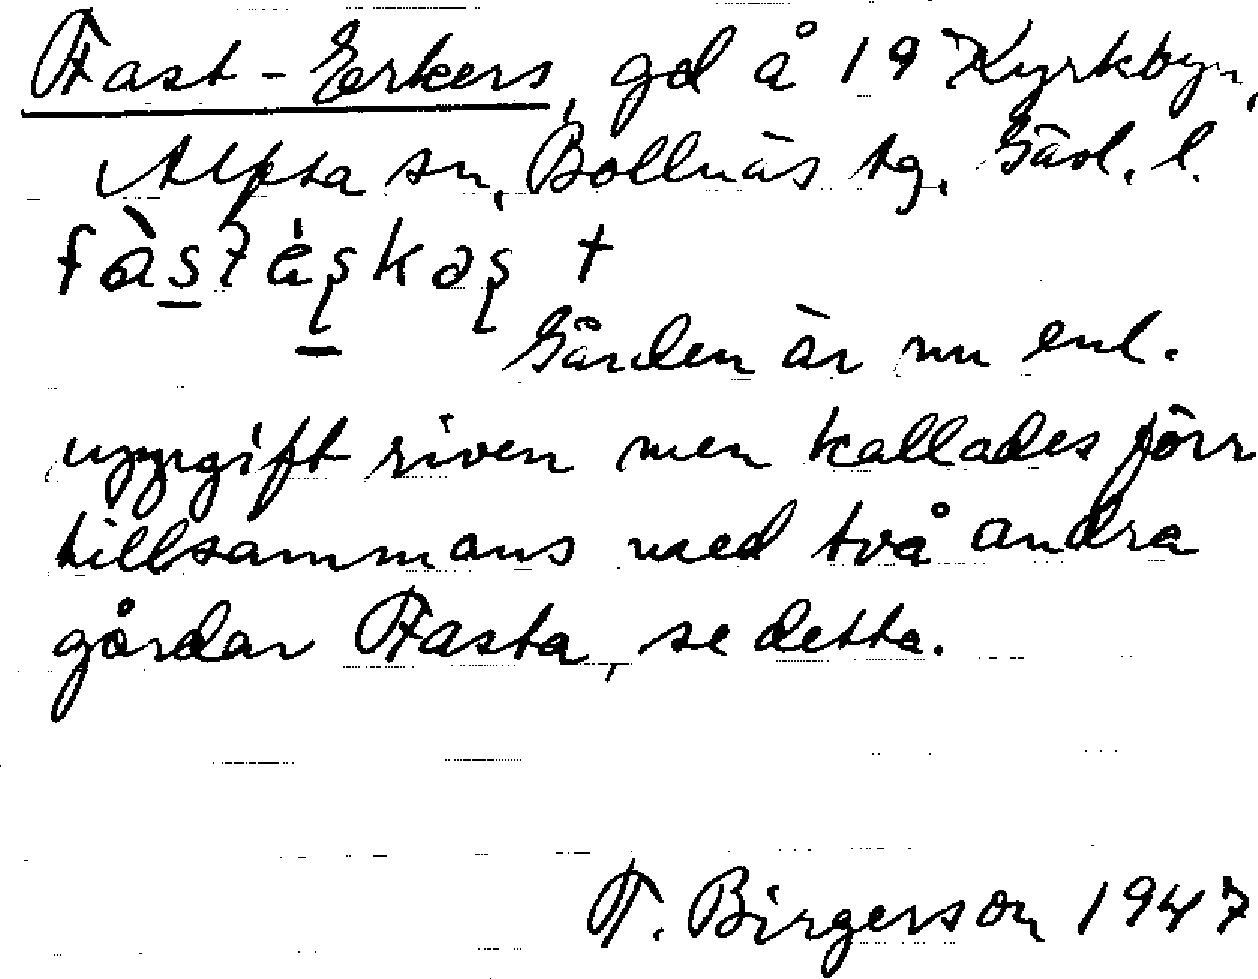 Fast-Erkers, gd å 19 Kyrkbyn,
Alfta sn, Bollnäs tg, Gävl. l.
Gården är nu enl.
uppgift riven men kallades förr
tillsammans med två andra
gårdar Fasta, se detta.
F. Birgerson 1947